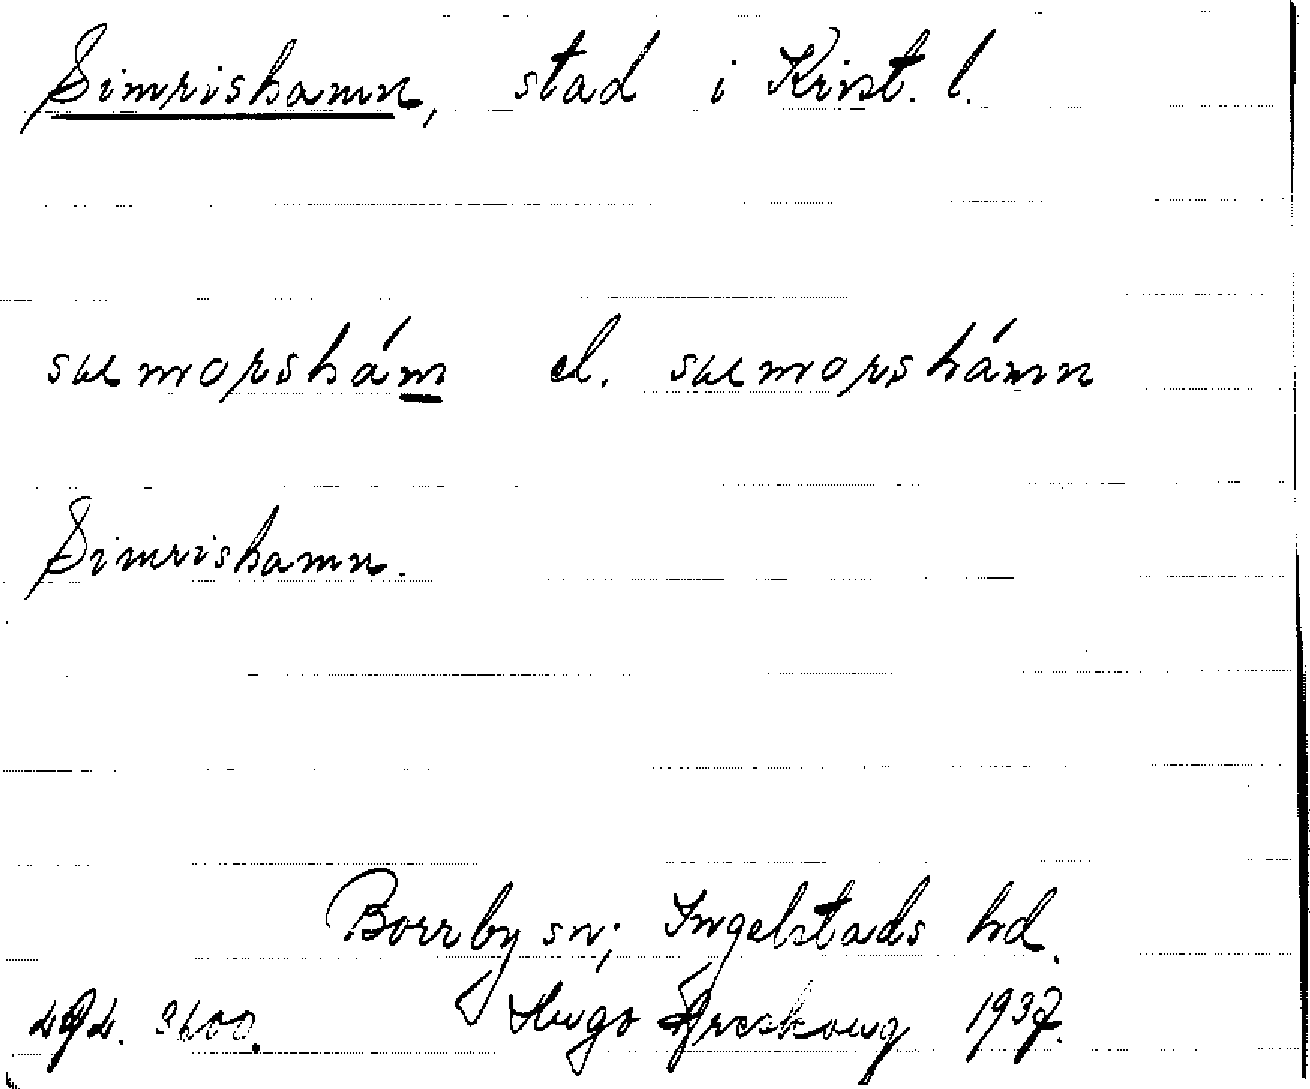 Simrishamn, stad i Krist. l.
sæmorshám el. sæmorshámn
Simrishamn.
Borrby sn; Ingelstads hd.
Hugo Areskoug 1937.